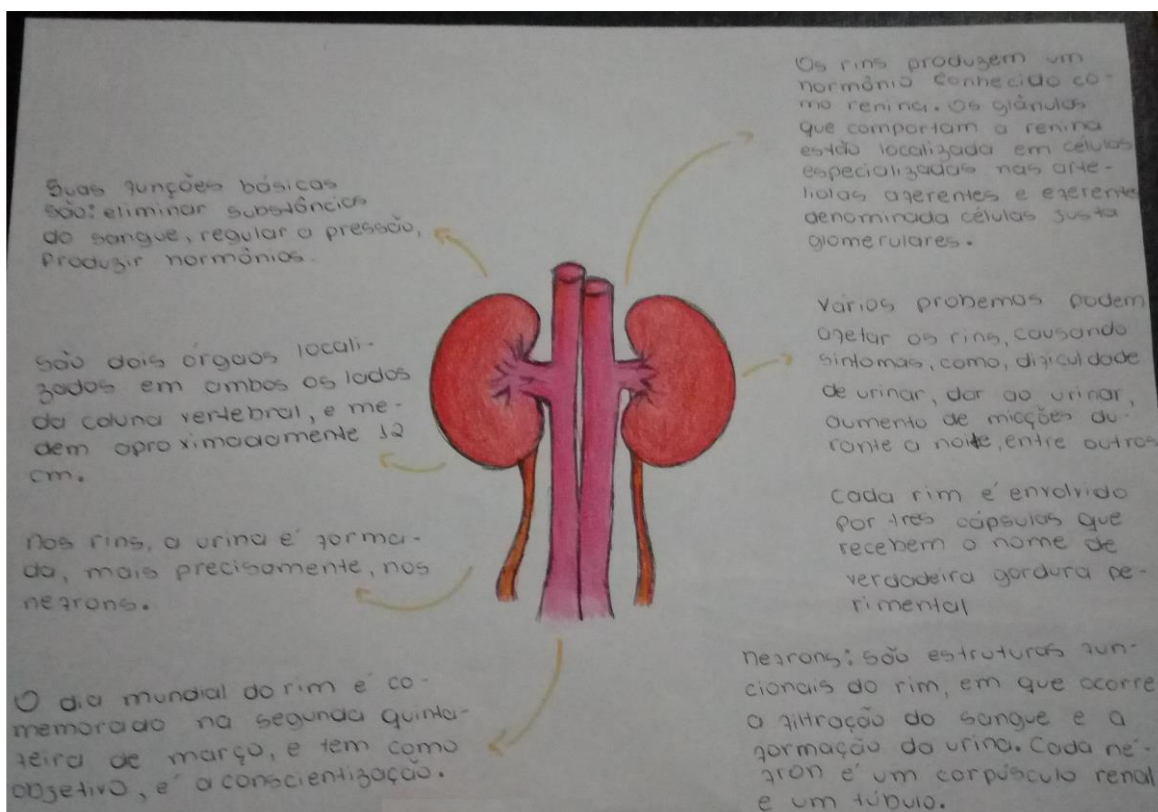 Suas funções básicas
são: eliminar substâncias
do sangue, regular a pressão,
Produzir normônios.
São dois órgaos locali-
zados em ambos os lados
da coluna vertebral, e me-
dem aproximadamente 12
cm.
Nos rins, a urina é forma-
da, mais precisamente, nos
nefrons.
O dia mundial do rim é co-
memorado na segunda quinta-
feira de março, e tem como
objetivo, é a conscientização.
Os rins produzem um
normônio conhecido co-
mo renina. Os glânulos
que comportam a renina
estão localizada em células
especializadas nas arte-
liolas aferentes e eferente
denominada células susta
glomerulares.
Vários probemas podem
afetar os rins, causando
sintomas, como, dificuldade
de urinar, dor ao urinar,
aumento de micções du-
rante a noite, entre outros
Cada rim é envolvido
por tres cápsulas que
recebem o nome de
verdadeira gordura pe-
rimental
nefrons: são estruturas fun-
cionais do rim, em que ocorre
a filtração do sangue e a
formação da urina. Cada né-
fron é um corpúsculo renal
e um túbulo.